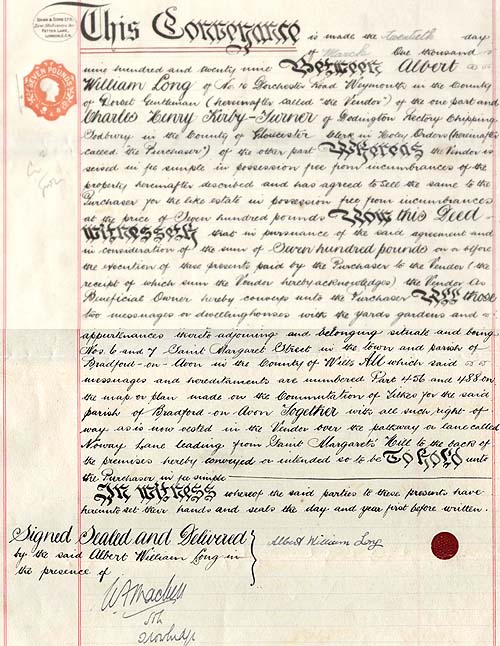 SHAW & SONS LTD
FETTER LANE,
LONDON, E.C.4.
SEVEN POUNDS
This Conveyance is made the twentieth day
of March One thousand
nine hundred and twenty nine Between Albert
William Long of No 10 Dorchester Road Weymouth in the County
of Dorset Gentleman (hereinafter called "the Vendor") of the one part and
Charles Henry Kirby-Turner of Dodington Rectory Chipping
Sodbury in the County of Gloucester Clerk in Holy Orders (hereinafter
called "the Purchaser") of the other part Whereas the Vendor is
seised in fee simple in possession free from incumbrances of the
property hereinafter described and has agreed to sell the same to the
Purchaser for the like estate in possession free from incumbrances
at the price of Seven hundred pounds Now this Deed
witnesseth that in pursuance of the said agreement and
in consideration of the sum of Seven hundred pounds on or before
the execution of these presents paid by the Purchaser to the Vendor (the
receipt of which sum the Vendor hereby acknowledges) the Vendor As
Beneficial Owner hereby conveys unto the Purchaser All those
two messuages or dwellinghouses with the yards gardens and
appurtenances thereto adjoining and belonging situate and being
Nos. 6 and 7 Saint Margaret Street in the town and parish of
Bradford-on-Avon in the County of Wilts All which said
messuages and hereditaments are numbered Part 456 and 488 on
the map or plan made on the Commutation of Tithes for the said
parish of Bradford-on-Avon Together with all such right-of
way as is now vested in the Vendor over the pathway or lane called
Noway Lane leading from Saint Margaret's Hill to the back of
the premises hereby conveyed or intended so to be To Hold unto
the Purchaser in fee simple
In witness whereof the said parties to these presents have
hereunto set their hands and seals the day and year first before written.
Signed Sealed and Delivered
by the said Albert William Long in
the presence of
Albert William Long